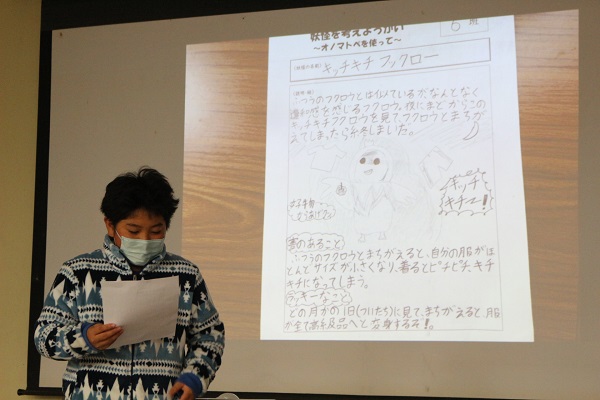 妖怪を考えようかい
～オノマトペを使って～
5 班
キッチキチ フックロー
ふつうのフクロウとは似ているが、なんとなく
感を感じるフクロウ。夜にまどからこの
キッチキチフクロウを見て、フクロウとまちが
えてしまったら終しまいだ。
キッチ
キチー!
好物
害のあること
ふつうのフクロウとまちがえると、自分の服がほ
とんどサイズが小さくなり、着るとピチピチ、キチ
キチになってしまう。
ラッキーなこと
どの月かの1日(ついたち)に見て、まちがえると、服
が全て高級品へと変身するぞ!。